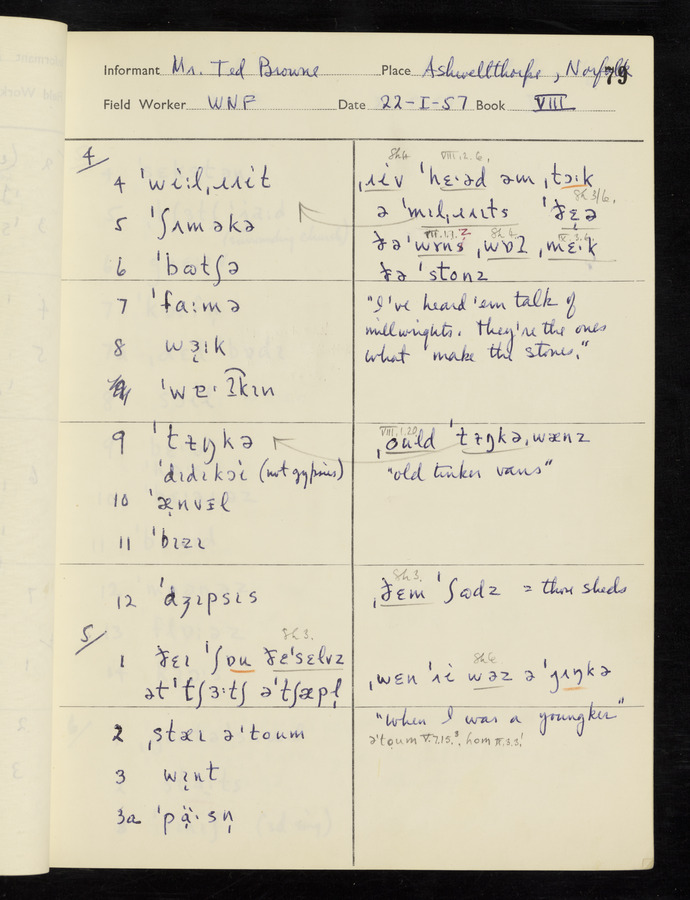 Informant Mr. Ted Browne Place Ashwellthorpe, Norfolk 79
Field Worker WNF Date 22-I-57 Book VIII
4/
4 ˈwiːlˌɹɪit
5 ˈʃʌməkə
6 ˈbʊtʃə
7 ˈfaːmə
8 wɜːk
9 ˈtɪŋkə
ˈdɪdɪkɔi (not gypsies)
10 ˈænvɪl
11 ˈbɪzɪ
12 ˈdʒɪpsɪs
5/
Sh 3.
1 ðeɪ ˈʃou ðeˈsɛlvz
ətˈtʃɜːtʃ əˈtʃæpl̩
2 ˌstæɪ əˈtoum
3 wɪnt
3a ˈpäːsn̩
VIII.2.6.
ˈhɛːəd əm ˌtɔːk
Sh 3/6.
ðəˈstonz
"I've heard 'em talk of
millwrights. They're the ones
what make the stones."
VIII.1.20
ˌould ˈtɪŋkəˌwænz
"old tinker vans"
Sh 3.
ˌðɛm ˈʃɒdz = thou sheds
ˌwɛn ˈɪi wəz əˈjʌŋkə
"when I was a youngker"
əˈtoum V.7.15.